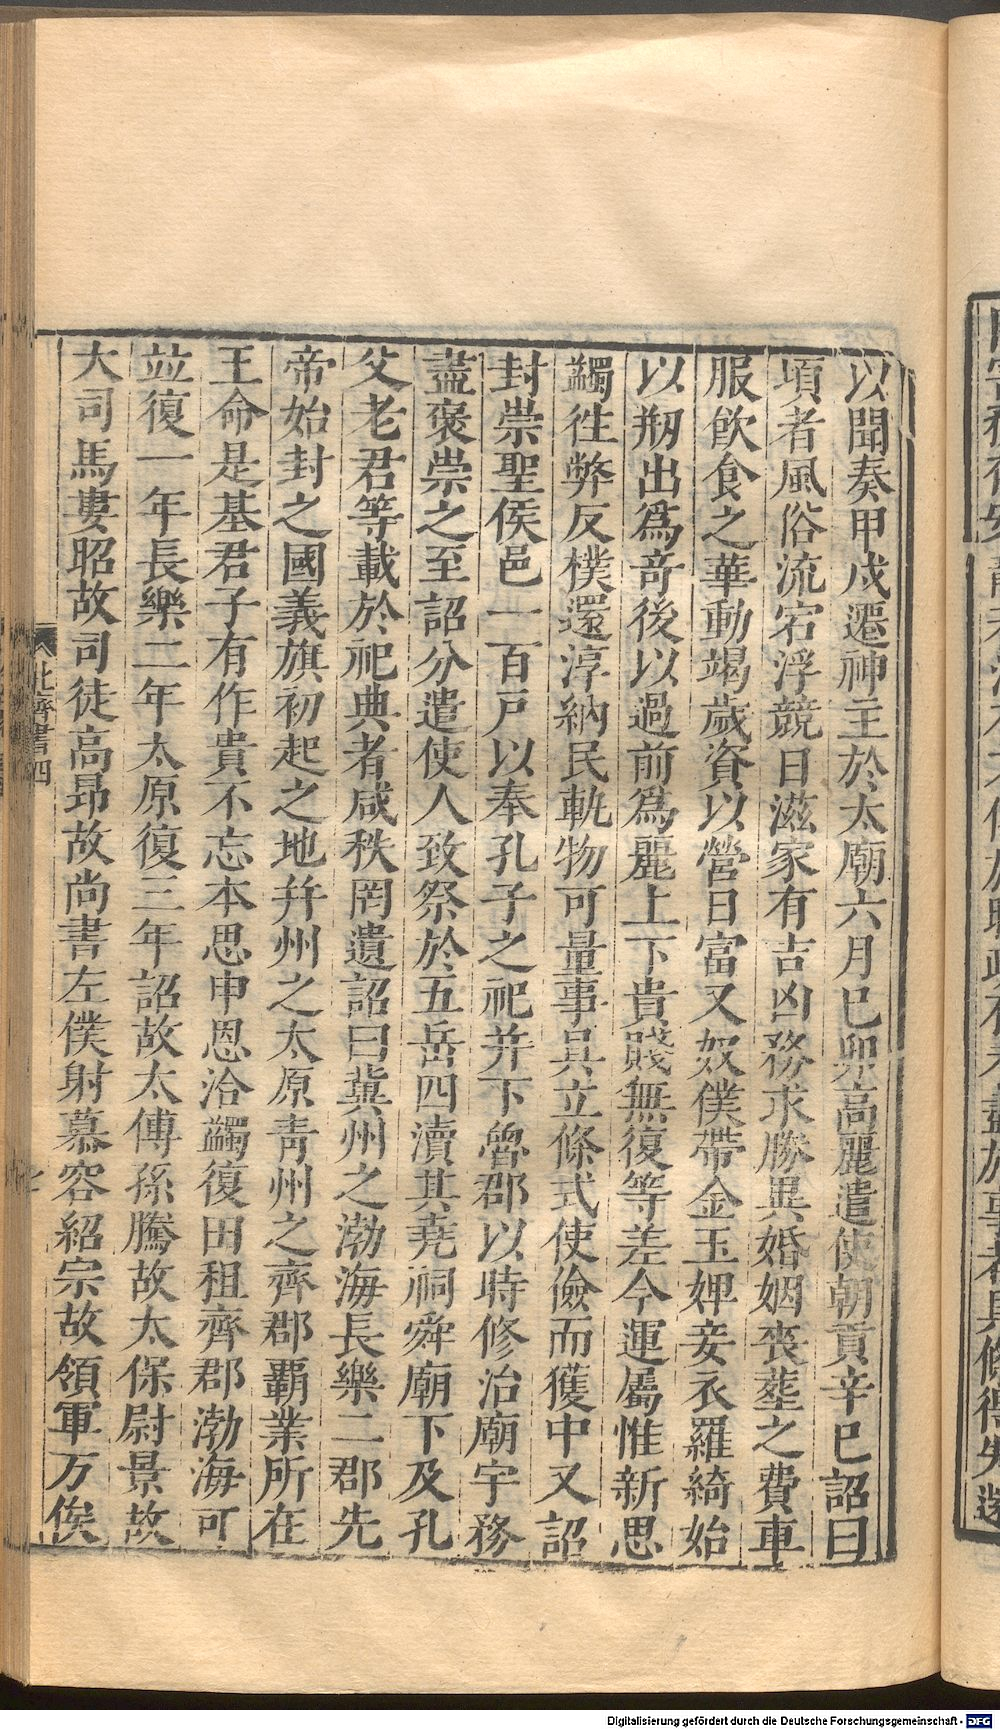 以聞奏甲戍遷神主於太廟六月巳卯高麗遣使朝貢辛巳詔曰
項者風俗流宕浮競日滋家有吉凶務求勝異婚姻喪塟之費車
服飲食之華動竭歲資以營日富又奴僕帶金玉婢妾衣羅綺始
以剏出爲竒後以過前爲麗上下貴賤無復等差今運屬惟新思
蠲徃弊反樸還淳納民軌物可量事具立條式使儉而獲中又詔
封崇聖侯邑一百戸以奉孔子之祀并下魯郡以時修治廟宇務
盡褒崇之至詔分遣使人致祭於五岳四瀆其堯祠舜廟下及孔
父老君等載於祀典者咸秩罔遺詔曰冀州之渤海長樂二郡先
帝始封之國義旗初起之地幷州之太原靑州之齊郡覇業所在
王命是基君子有作貴不忘本思申恩洽蠲復田租齊郡渤海可
並復一年長樂二年太原復三年詔故太傅孫騰故太保尉景故
大司馬婁昭故司徒高昂故尚書左僕射慕容紹宗故領軍万俟
北齊書四
Digitalisierung gefördert durch die Deutsche Forschungsgemeinschaft - DFG